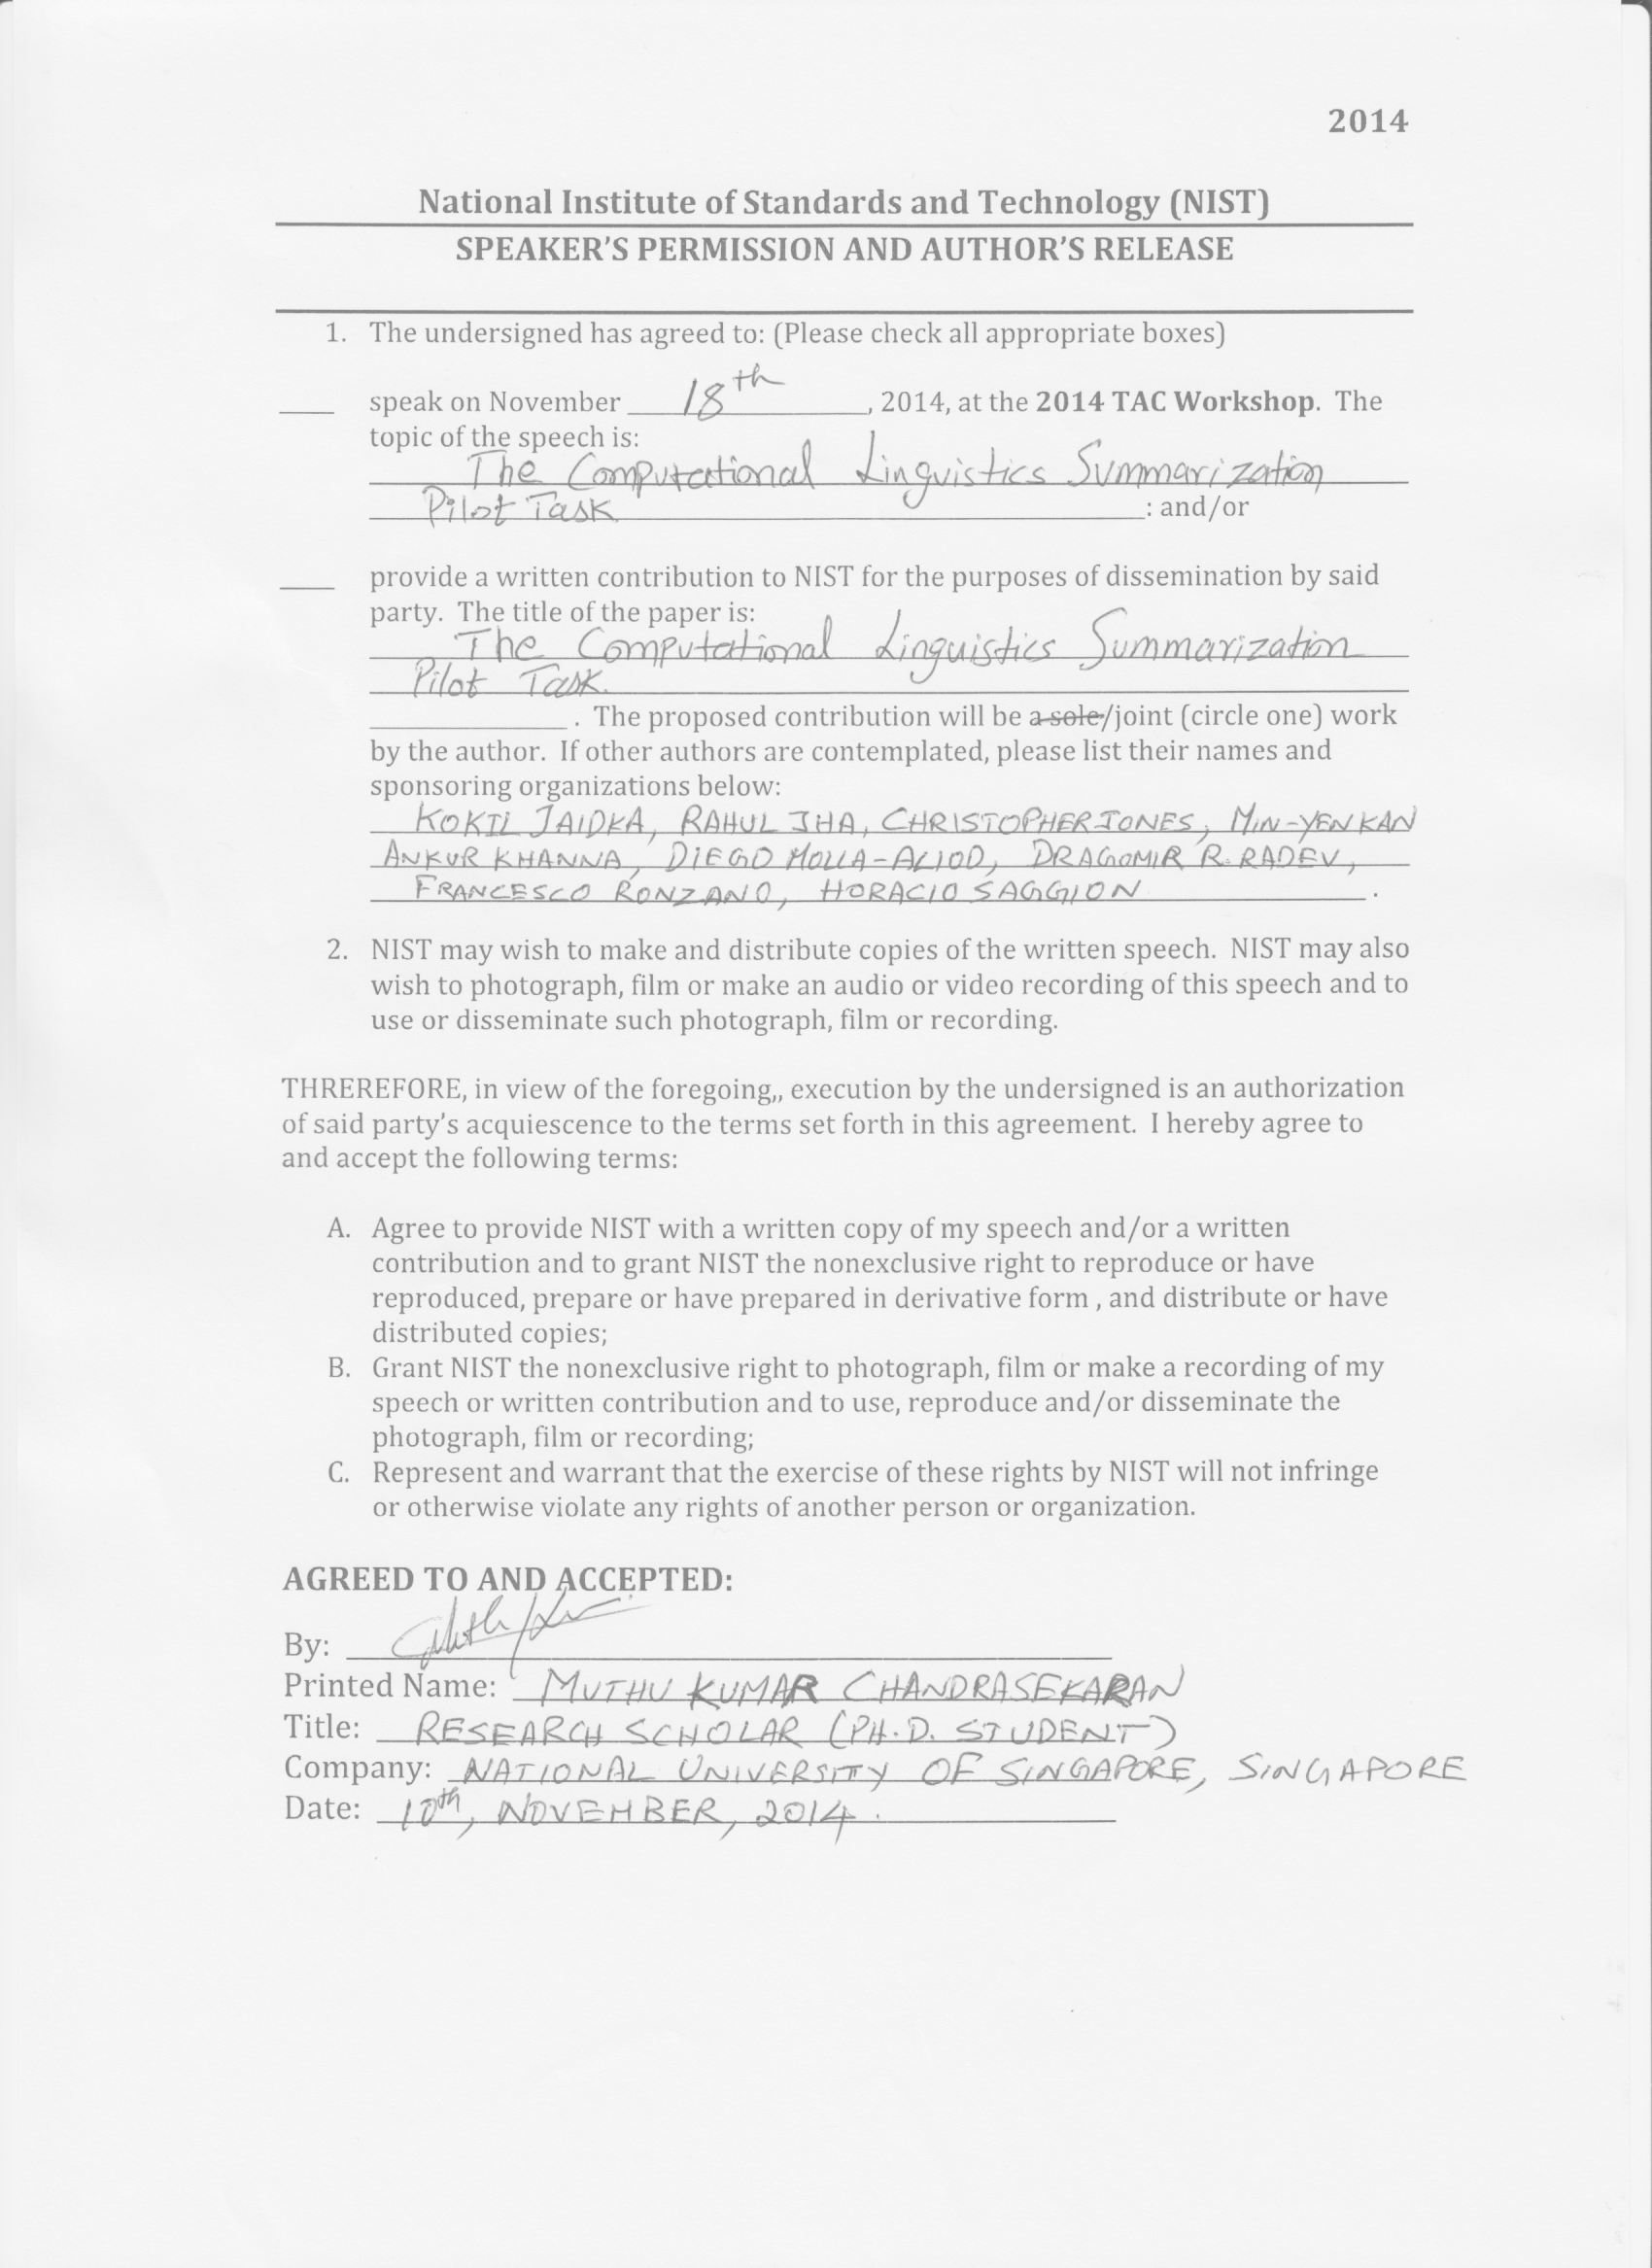 2014
National Institute of Standards and Technology (NIST)
SPEAKER'S PERMISSION AND AUTHOR'S RELEASE
1. The undersigned has agreed to: (Please check all appropriate boxes)
____ speak on November 18th, 2014, at the 2014 TAC Workshop. The
topic of the speech is:
The Computational Linguistics Summarization
Pilot Task : and/or
____ provide a written contribution to NIST for the purposes of dissemination by said
party. The title of the paper is:
The Computational Linguistics Summarization
Pilot Task.
____________. The proposed contribution will be a sole/joint (circle one) work
by the author. If other authors are contemplated, please list their names and
sponsoring organizations below:
KOKIL JAIDKA, RAHUL JHA, CHRISTOPHER JONES, MIN-YEN KAN
ANKUR KHANNA, DIEGO MOLLA-ALIOD, DRAGOMIR R. RADEV,
FRANCESCO RONZANO, HORACIO SAGGION .
2. NIST may wish to make and distribute copies of the written speech. NIST may also
wish to photograph, film or make an audio or video recording of this speech and to
use or disseminate such photograph, film or recording.
THREREFORE, in view of the foregoing,, execution by the undersigned is an authorization
of said party's acquiescence to the terms set forth in this agreement. I hereby agree to
and accept the following terms:
A. Agree to provide NIST with a written copy of my speech and/or a written
contribution and to grant NIST the nonexclusive right to reproduce or have
reproduced, prepare or have prepared in derivative form , and distribute or have
distributed copies;
B. Grant NIST the nonexclusive right to photograph, film or make a recording of my
speech or written contribution and to use, reproduce and/or disseminate the
photograph, film or recording;
C. Represent and warrant that the exercise of these rights by NIST will not infringe
or otherwise violate any rights of another person or organization.
AGREED TO AND ACCEPTED:
By:
Printed Name: MUTHU KUMAR CHANDRASEKARAN
Title: RESEARCH SCHOLAR (PH.D. STUDENT)
Company: NATIONAL UNIVERSITY OF SINGAPORE, SINGAPORE
Date: 10th, NOVEMBER, 2014.